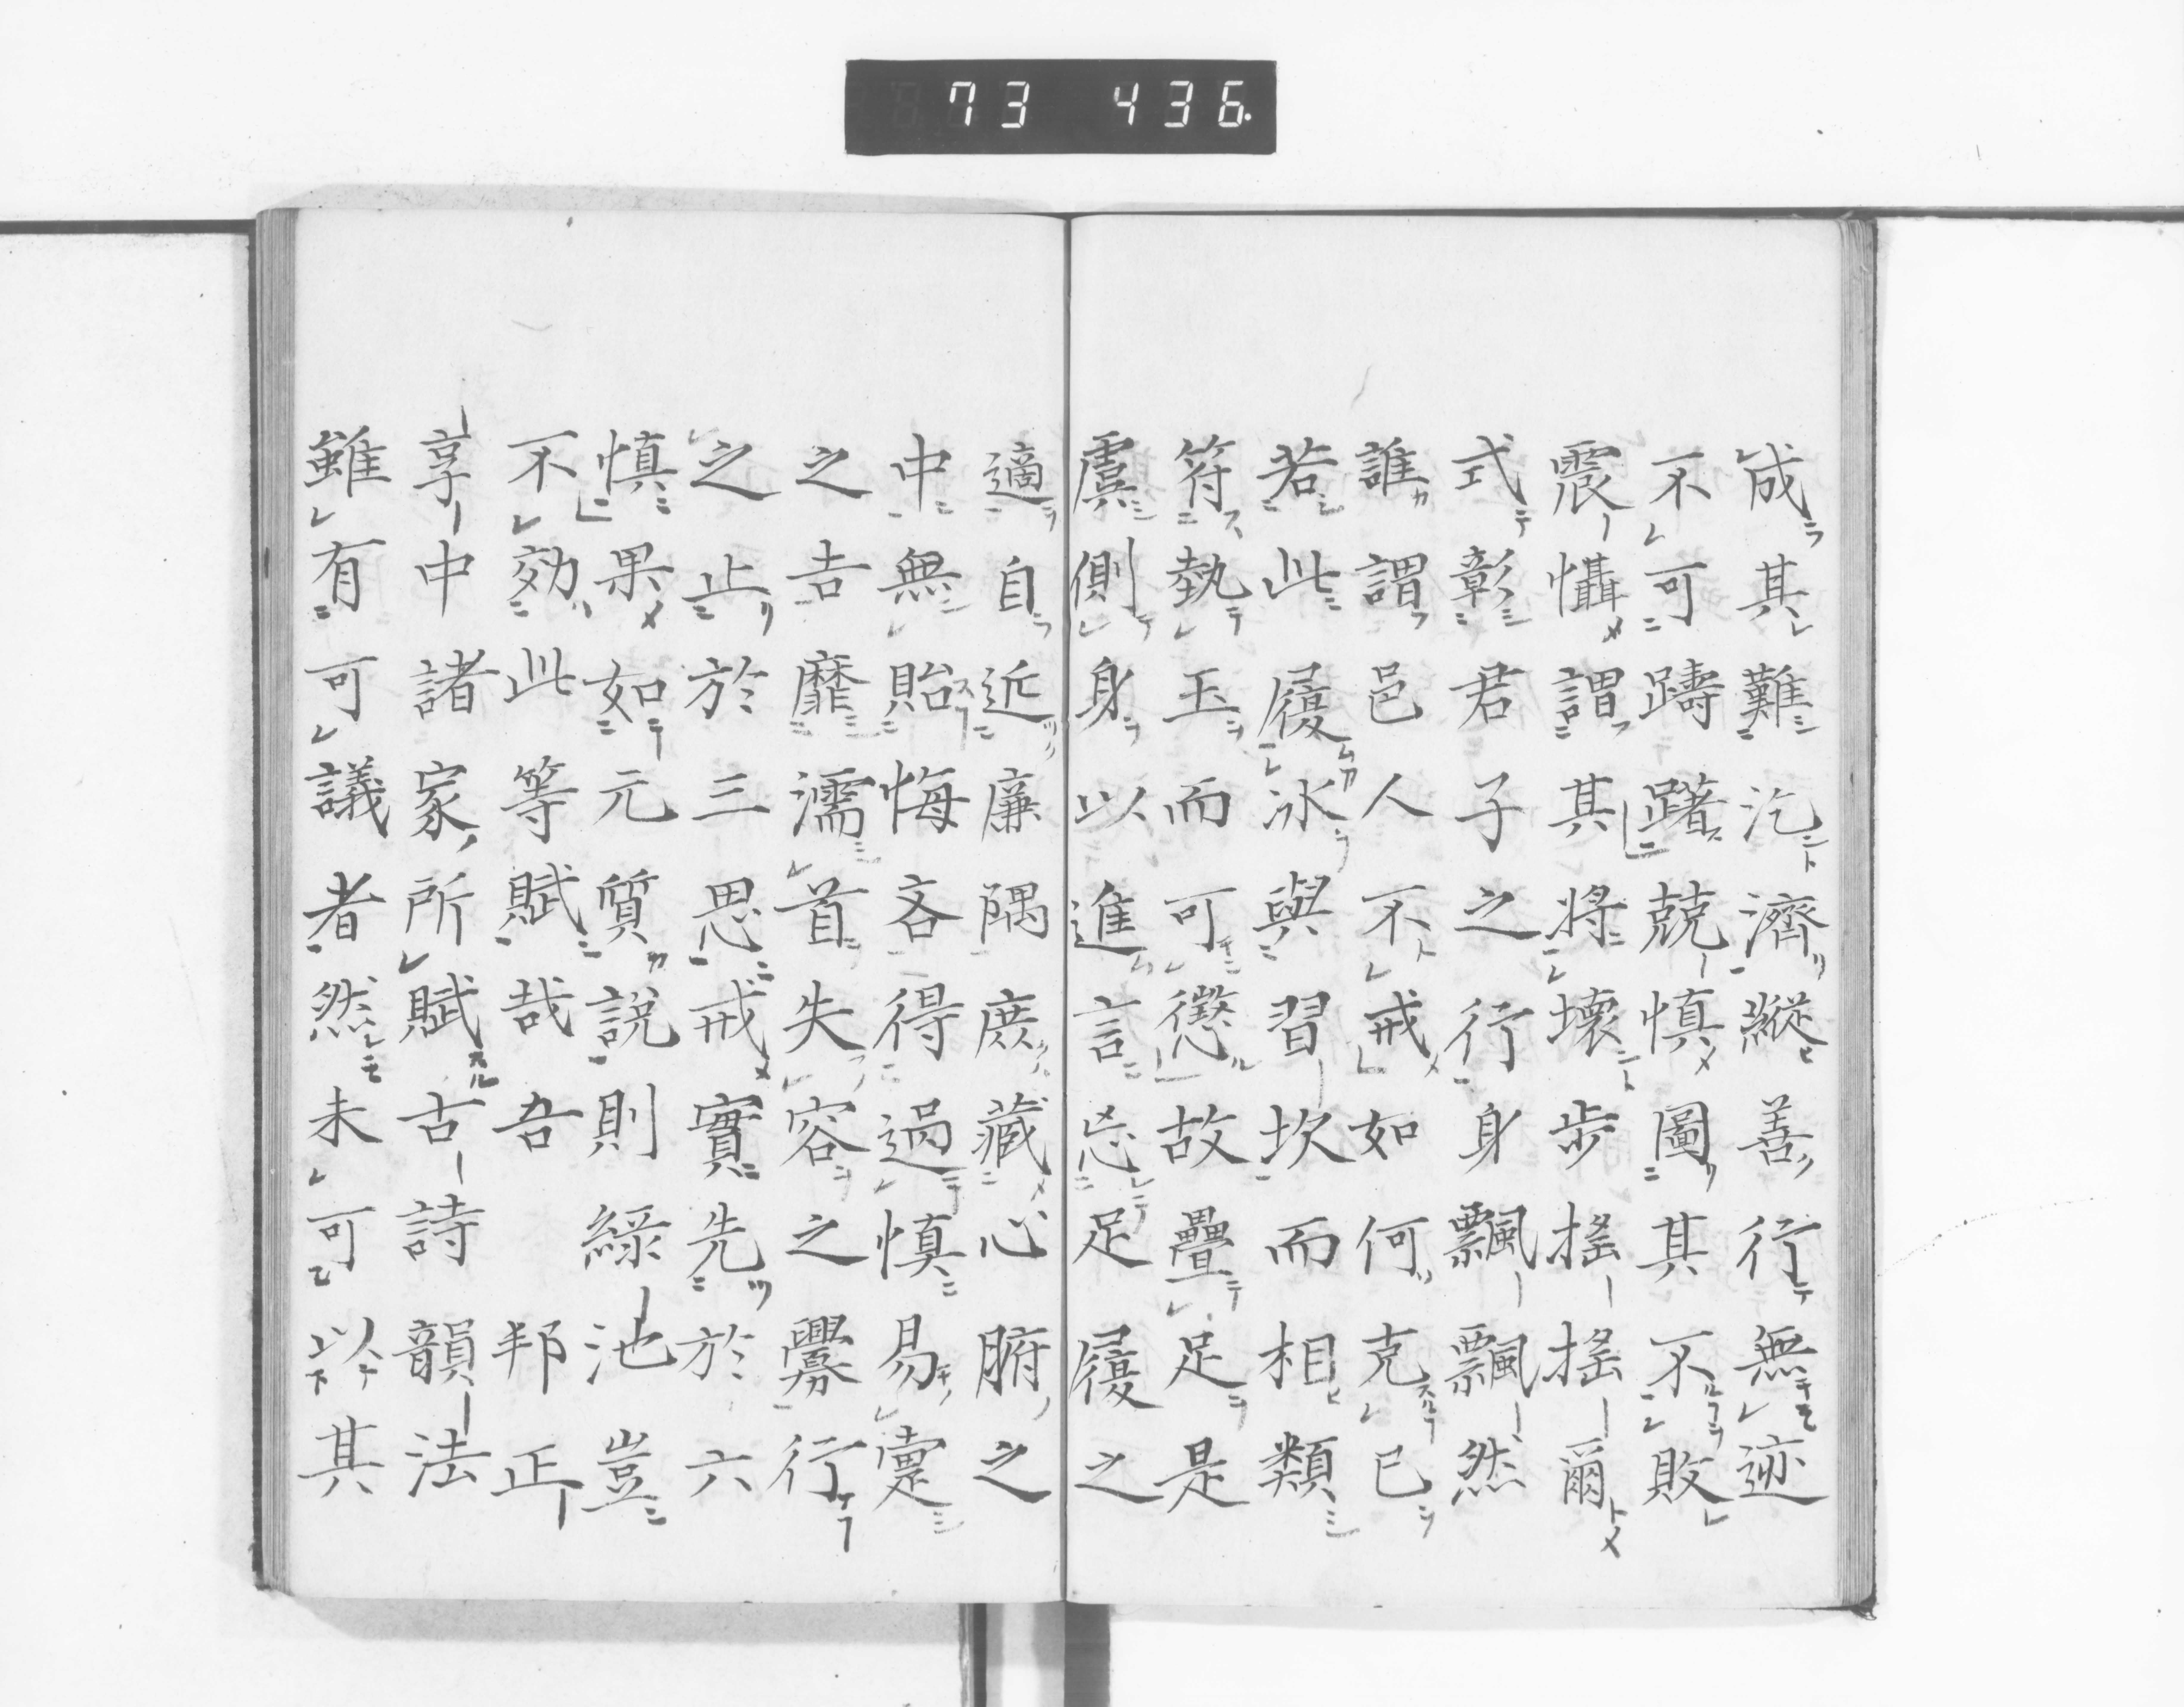 73 436
成其難汔濟縱善行無迹
不可躊躇兢慎圖其不敗
震懾謂其將壞步搖搖爾
式彰君子之行身飄飄然
誰謂邑人不戒如何克已
若此履冰與習坎而相類
符執玉而可懲故疊足是
虞側身以進言忘足履之
適自近廉隅庶藏心腑之
中無貽悔吝得過慎易寔
之吉靡濡首失容之釁行
之止於三思戒實先於六
慎果如元質說則綠池豈
不効此等賦哉吾邦正
享中諸家所賦古詩韻法
雖有可議者然未可以其